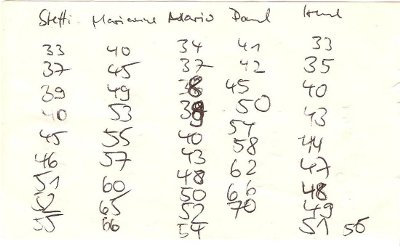 Steffi Marianne Mario Paul Irml
33 40 34 41 33
37 45 37 42 35
39 49 38 45 40
40 53 39 50 43
45 55 40 54 44
46 57 43 58 47
51 60 48 62 48
52 65 50 66 49
55 66 52 70 51 56
54